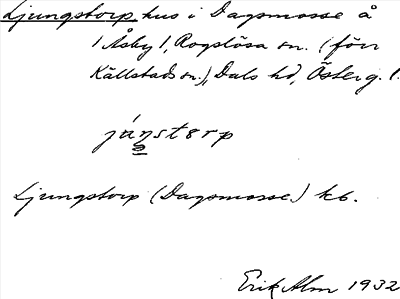 Ljungstorp, hus i Dagsmosse å
1 Åsby 1, Rogslösa sn. (förr
Källstads sn.), Dals hd, Österg. l.
jáŋstɛrp
Ljungstorp (Dagsmosse) kb.
Erik Alm 1932